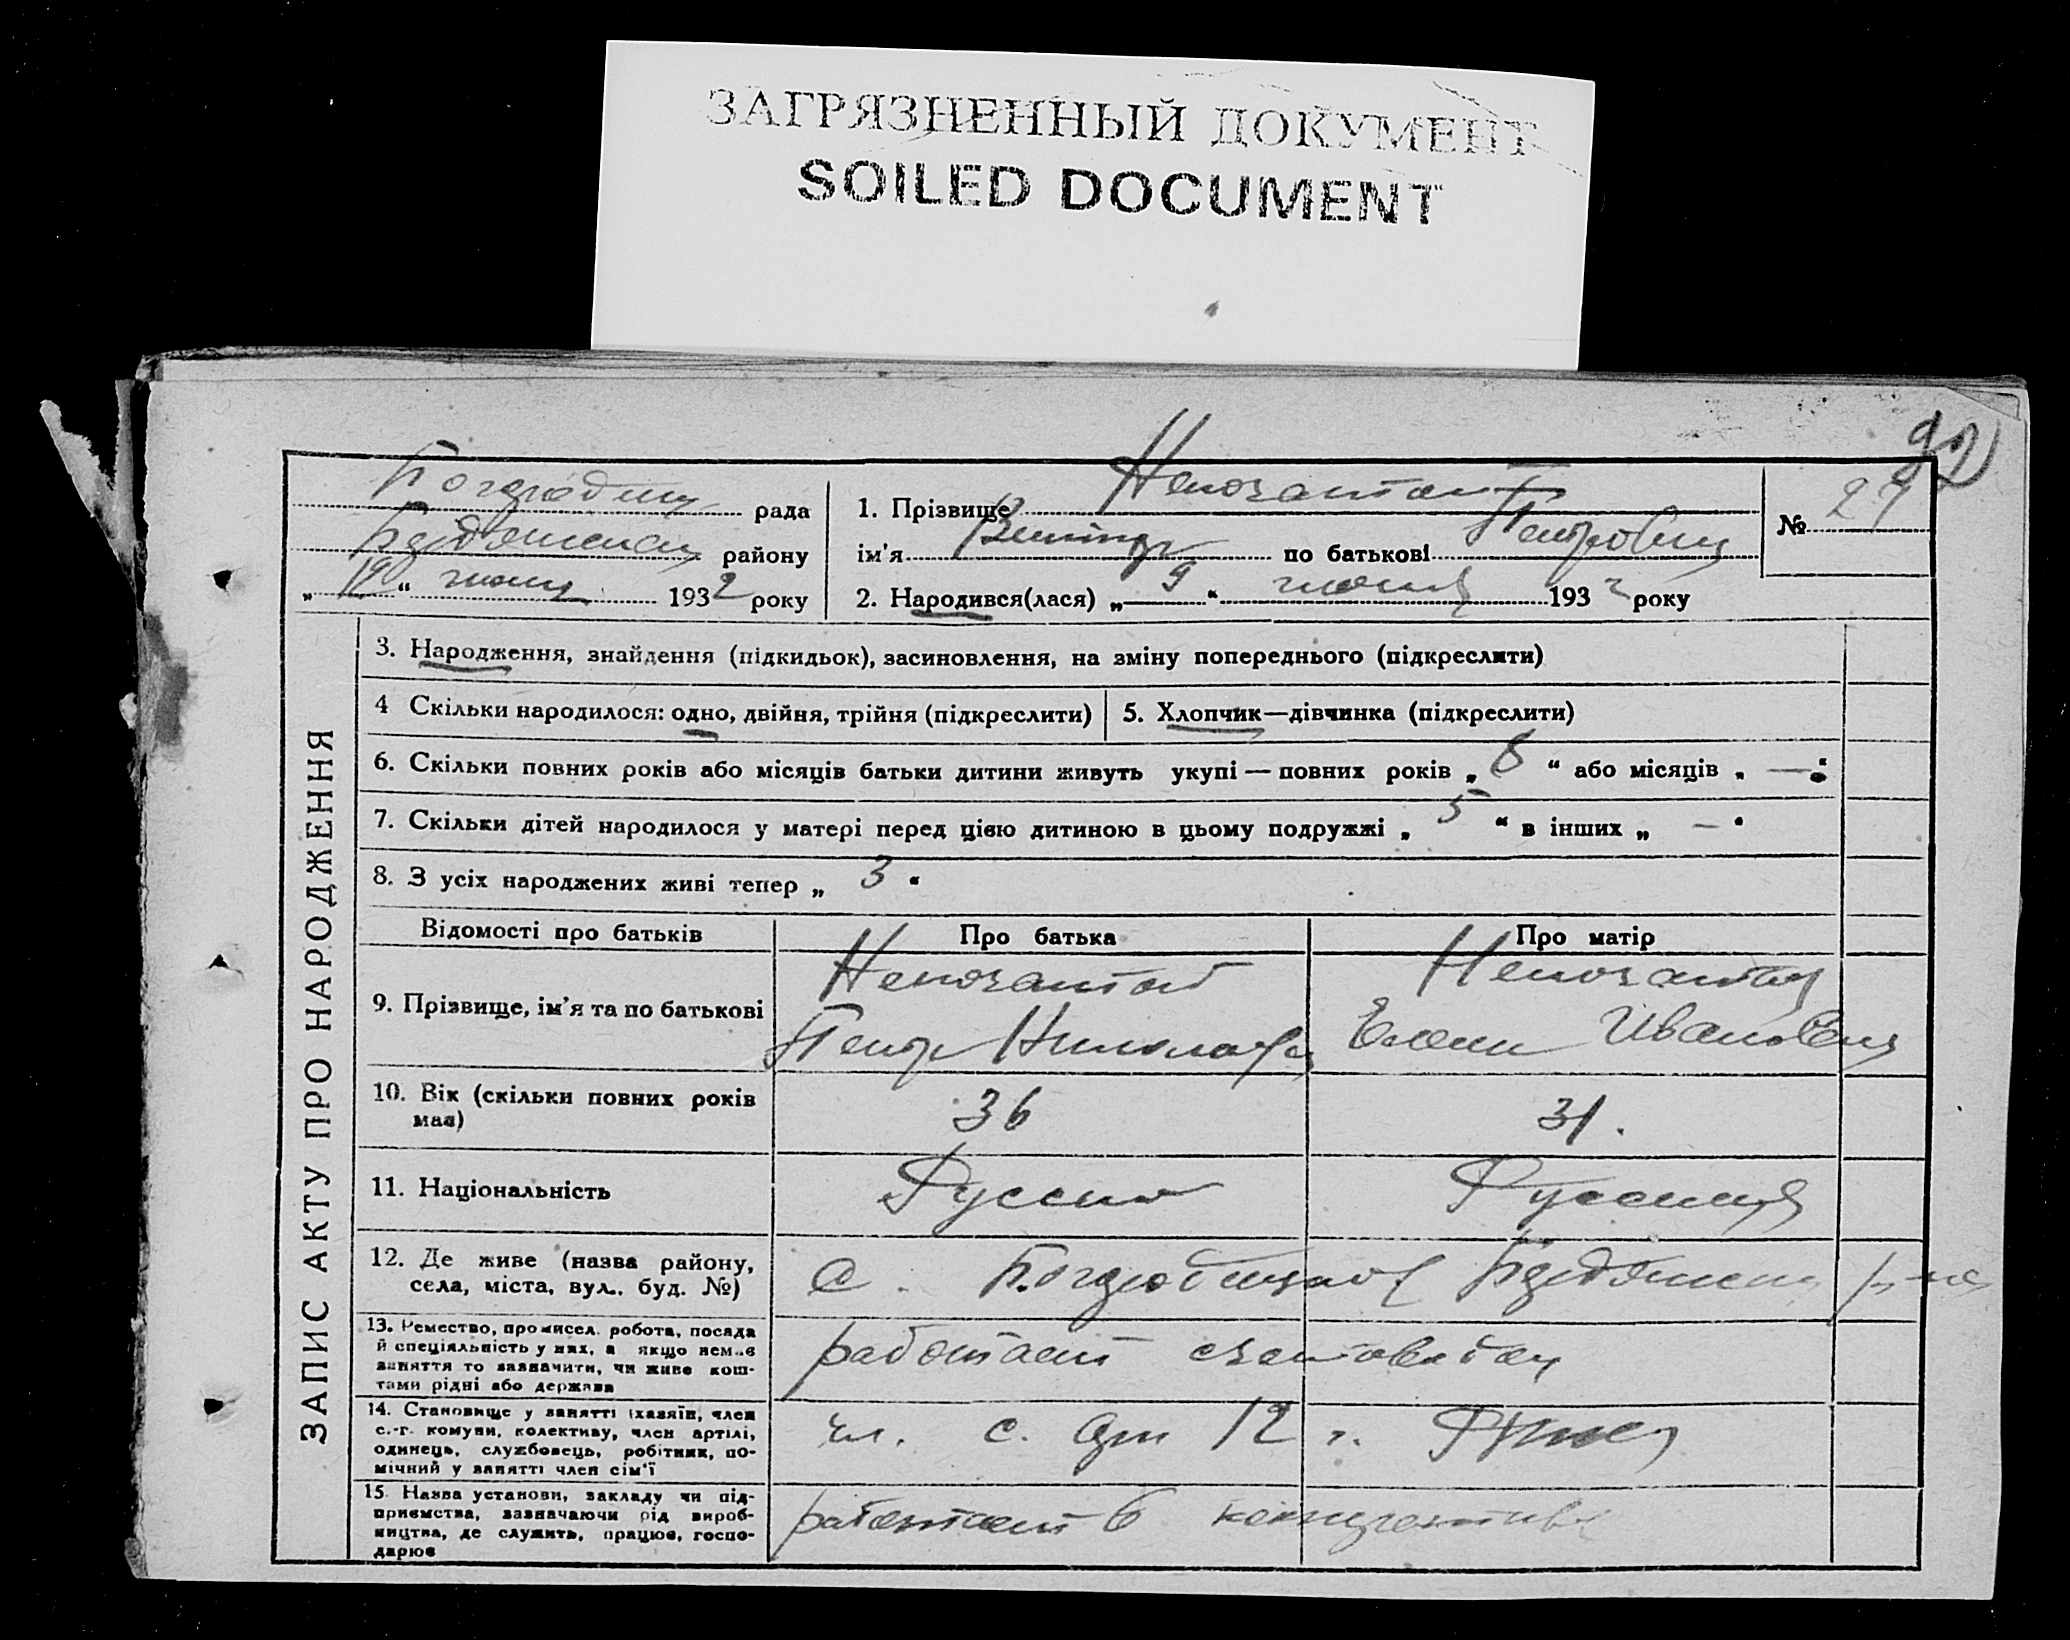 ЗАГРЯЗНЕННЫЙ ДОКУМЕНТ
SOILED DOCUMENT
92
рада
району
1932 року
1. Прізвище
ім'я Виктор по батькові Петрович
2. Народився(лася) „ 9 “ июня 1932 року
№ 27
ЗАПИС АКТУ ПРО НАРОДЖЕННЯ
3. Народження, знайдення (підкидьок), засиновлення, на зміну попереднього (підкреслити)
4 Скільки народилося: одно, двійня, трійня (підкреслити)
5. Хлопчик—дівчинка (підкреслити)
6. Скільки повних років або місяців батьки дитини живуть укупі — повних років „ 8 “ або місяців „ — “
7. Скільки дітей народилося у матері перед цією дитиною в цьому подружжі „ 5 “ в інших „ — “
8. З усіх народжених живі тепер „ 3 “
Відомості про батьків
Про батька
Про матір
9. Прізвище, ім’я та по батькові
Непочатой
Петр Николаев
Непочатая
Елена Ивановна
10. Вік (скільки повних років
має)
36
31.
11. Національність
Русский
Русская
12. Де живе (назва району,
села, міста, вул. буд. №)
с.
13. Ремество, промисел, робота, посада
й спеціяльність у них, а якщо немає
заняття то зазначити, чи живе кош-
тами рідні або держави
работает счетоводом
14. Становище у занятті (хазяїн, член
с.-г. комуни, колективу, член артілі,
одинець, службовець, робітник, по-
мічний у занятті член сім'ї
чл. с. арт 12 г.
15. Назва установи, закладу чи під-
приємства, зазначаючи рід вироб-
ництва, де служить, працює, госпо-
дарює
работает в коллективе